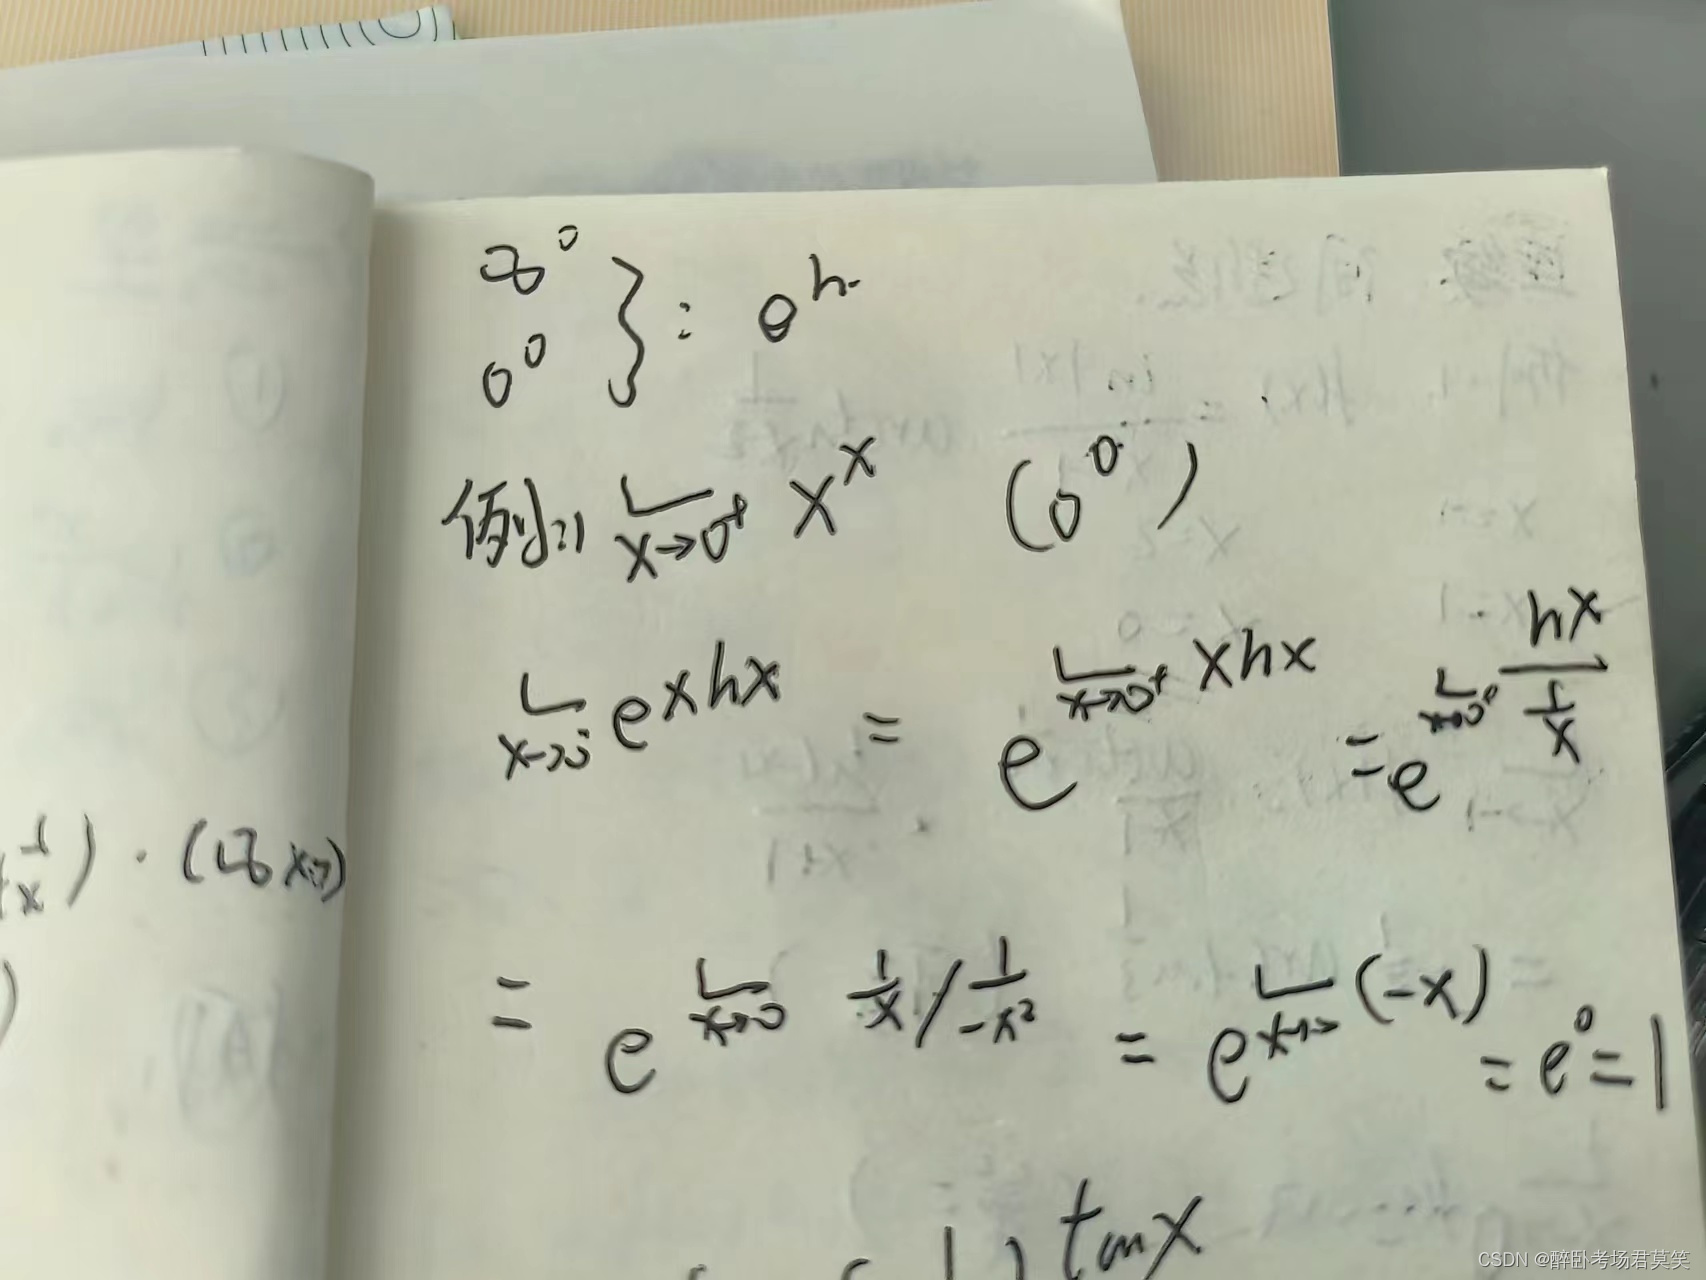 ∞⁰
0⁰ } : e^{ln}
例1 lim_{x→0⁺} x^x (0⁰)
lim_{x→0⁺} e^{x ln x} = e^{lim_{x→0⁺} x ln x} = e^{lim_{x→0⁺} \frac{ln x}{\frac{1}{x}}}
\frac{1}{x}) · (
= e^{lim_{x→0} \frac{1}{x} / \frac{1}{-x²}} = e^{lim_{x→0} (-x)} = e⁰ = 1
tan x
CSDN @醉卧考场君莫笑